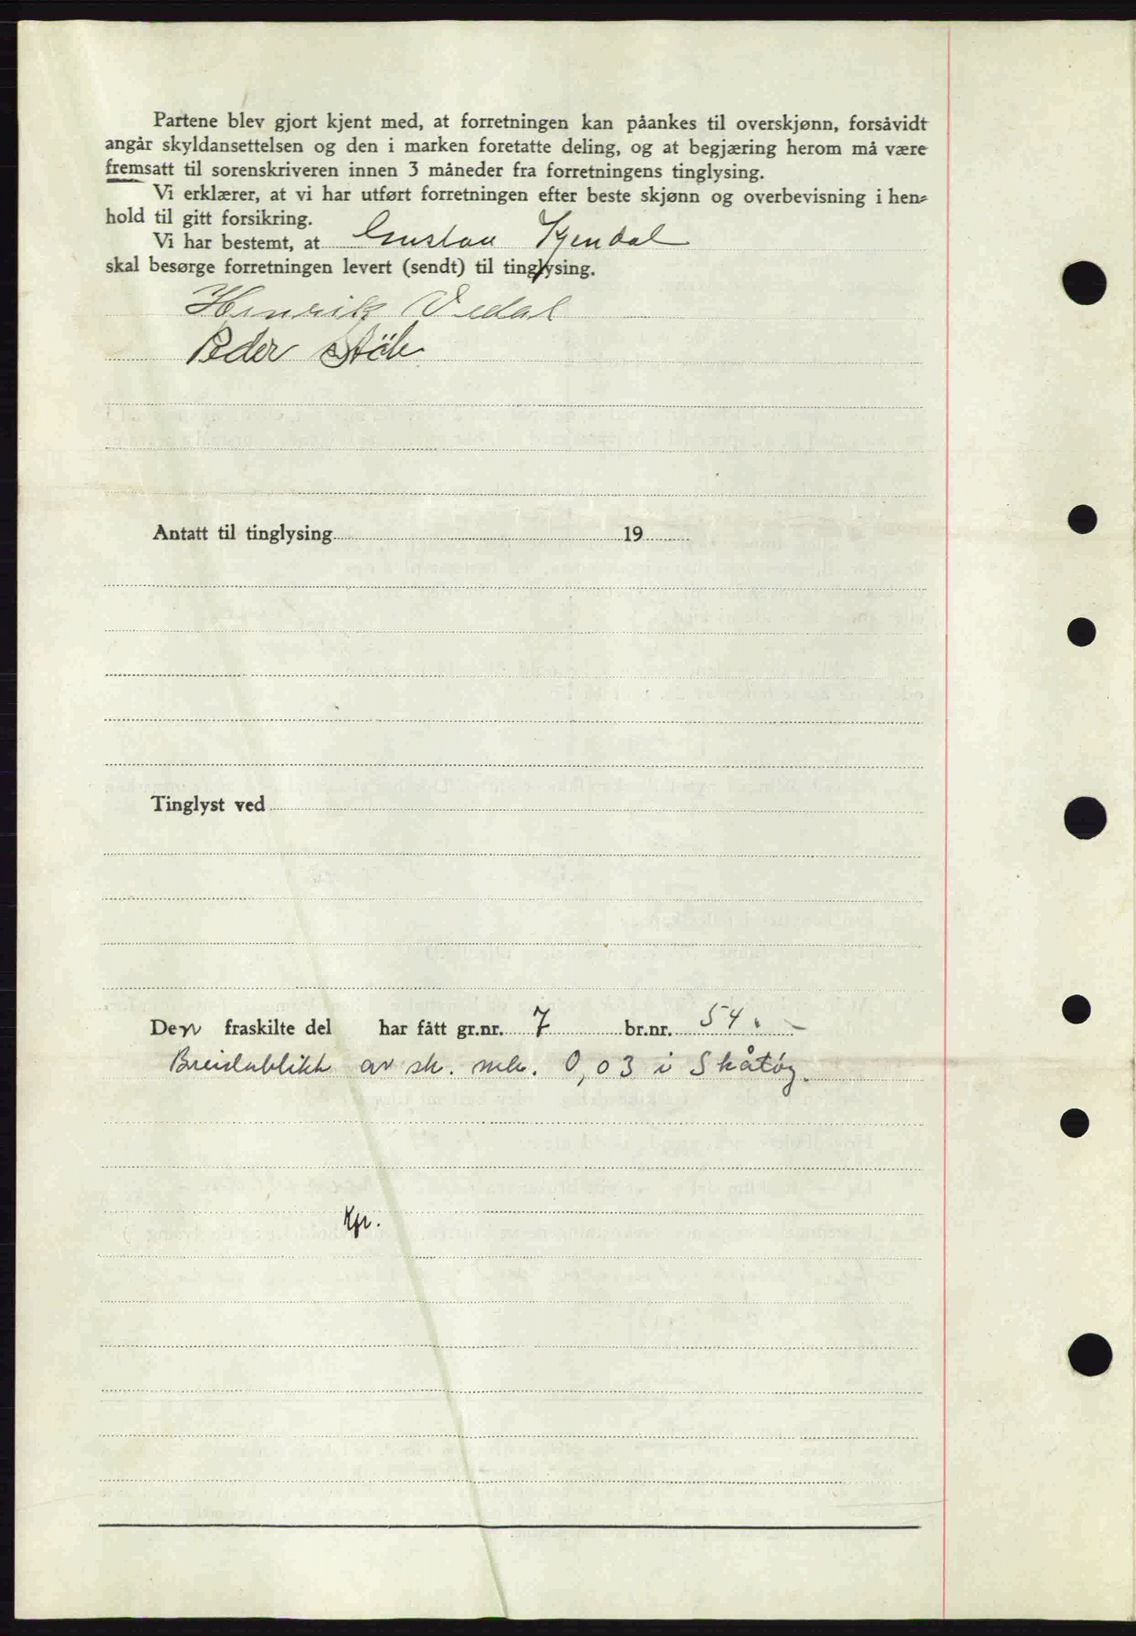 Partene blev gjort kjent med, at forretningen kan påankes til overskjønn, forsåvidt
angår skyldansettelsen og den i marken foretatte deling, og at begjæring herom må være
fremsatt til sorenskriveren innen 3 måneder fra forretningens tinglysing.
Vi erklærer, at vi har utført forretningen efter beste skjønn og overbevisning i hen-
hold til gitt forsikring.
Vi har bestemt, at Gustav
skal besørge forretningen levert (sendt) til tinglysing.
Henrik Vedal
Peder Støle
Antatt til tinglysing 19
Tinglyst ved
Den fraskilte del har fått gr.nr. 7 br.nr. 54.
Breidablikk av sk. mk. 0,03 i Skåtøy.